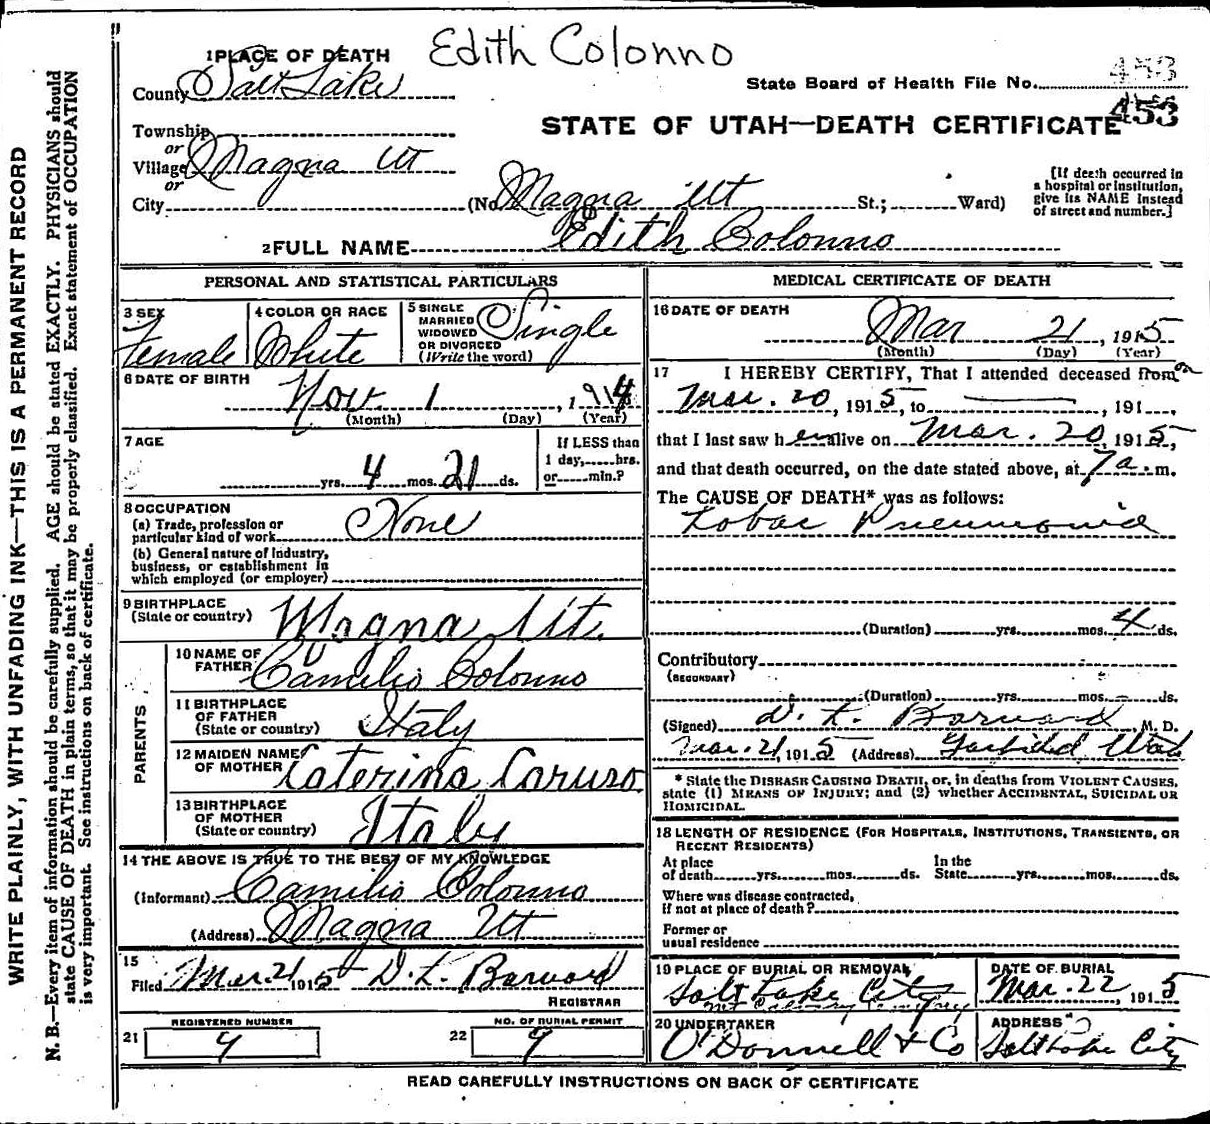 Edith Colonno
1 PLACE OF DEATH
County Salt Lake
State Board of Health File No. 453
453
STATE OF UTAH—DEATH CERTIFICATE
Township
or
Village Magna Ut
or
City
(No. Magna Ut St.; Ward)
[If death occurred in
a hospital or institution,
give its NAME instead
of street and number.]
2 FULL NAME Edith Colonno
PERSONAL AND STATISTICAL PARTICULARS
3 SEX Female
4 COLOR OR RACE White
5 SINGLE
MARRIED
WIDOWED
OR DIVORCED
(Write the word) Single
6 DATE OF BIRTH
Nov 1, 1914
(Month) (Day) (Year)
7 AGE
yrs. 4 mos. 21 ds.
If LESS than
1 day,.....hrs.
or.....min.?
8 OCCUPATION
(a) Trade, profession or
particular kind of work None
(b) General nature of industry,
business, or establishment in
which employed (or employer)
9 BIRTHPLACE
(State or country) Magna Ut.
PARENTS
10 NAME OF
FATHER Camilio Colonno
11 BIRTHPLACE
OF FATHER
(State or country) Italy
12 MAIDEN NAME
OF MOTHER Caterina Caruso
13 BIRTHPLACE
OF MOTHER
(State or country) Italy
14 THE ABOVE IS TRUE TO THE BEST OF MY KNOWLEDGE
(Informant) Camilio Colonno
(Address) Magna Ut
15
Filed Mar 21 1915 D. L. Barnard
REGISTRAR
REGISTERED NUMBER
21 9
NO. OF BURIAL PERMIT
22 9
MEDICAL CERTIFICATE OF DEATH
16 DATE OF DEATH
Mar 21, 1915
(Month) (Day) (Year)
17 I HEREBY CERTIFY, That I attended deceased from on
Mar. 20, 1915, to , 191
that I last saw her alive on Mar. 20, 1915,
and that death occurred, on the date stated above, at 7 a. m.
The CAUSE OF DEATH* was as follows:
Lobar Pneumonia
(Duration) yrs. mos. 4 ds.
Contributory
(SECONDARY)
(Duration) yrs. mos. ds.
(Signed) D. L. Barnard M. D.
Mar. 21, 1915 (Address) Garfield, Utah
* State the DISEASE CAUSING DEATH, or, in deaths from VIOLENT CAUSES,
state (1) MEANS OF INJURY; and (2) whether ACCIDENTAL, SUICIDAL OR
HOMICIDAL.
18 LENGTH OF RESIDENCE (FOR HOSPITALS, INSTITUTIONS, TRANSIENTS, OR
RECENT RESIDENTS)
At place
of death yrs. mos. ds.
In the
State yrs. mos. ds.
Where was disease contracted,
if not at place of death?
Former or
usual residence
19 PLACE OF BURIAL OR REMOVAL
Salt Lake City
Mt Calvary Cemetery
DATE OF BURIAL
Mar. 22, 1915
20 UNDERTAKER
O'Donnell & Co
ADDRESS
Salt Lake City
READ CAREFULLY INSTRUCTIONS ON BACK OF CERTIFICATE
WRITE PLAINLY, WITH UNFADING INK—THIS IS A PERMANENT RECORD
N. B.—Every item of information should be carefully supplied. AGE should be stated EXACTLY. PHYSICIANS should
state CAUSE OF DEATH in plain terms, so that it may be properly classified. Exact statement of OCCUPATION
is very important. See instructions on back of certificate.